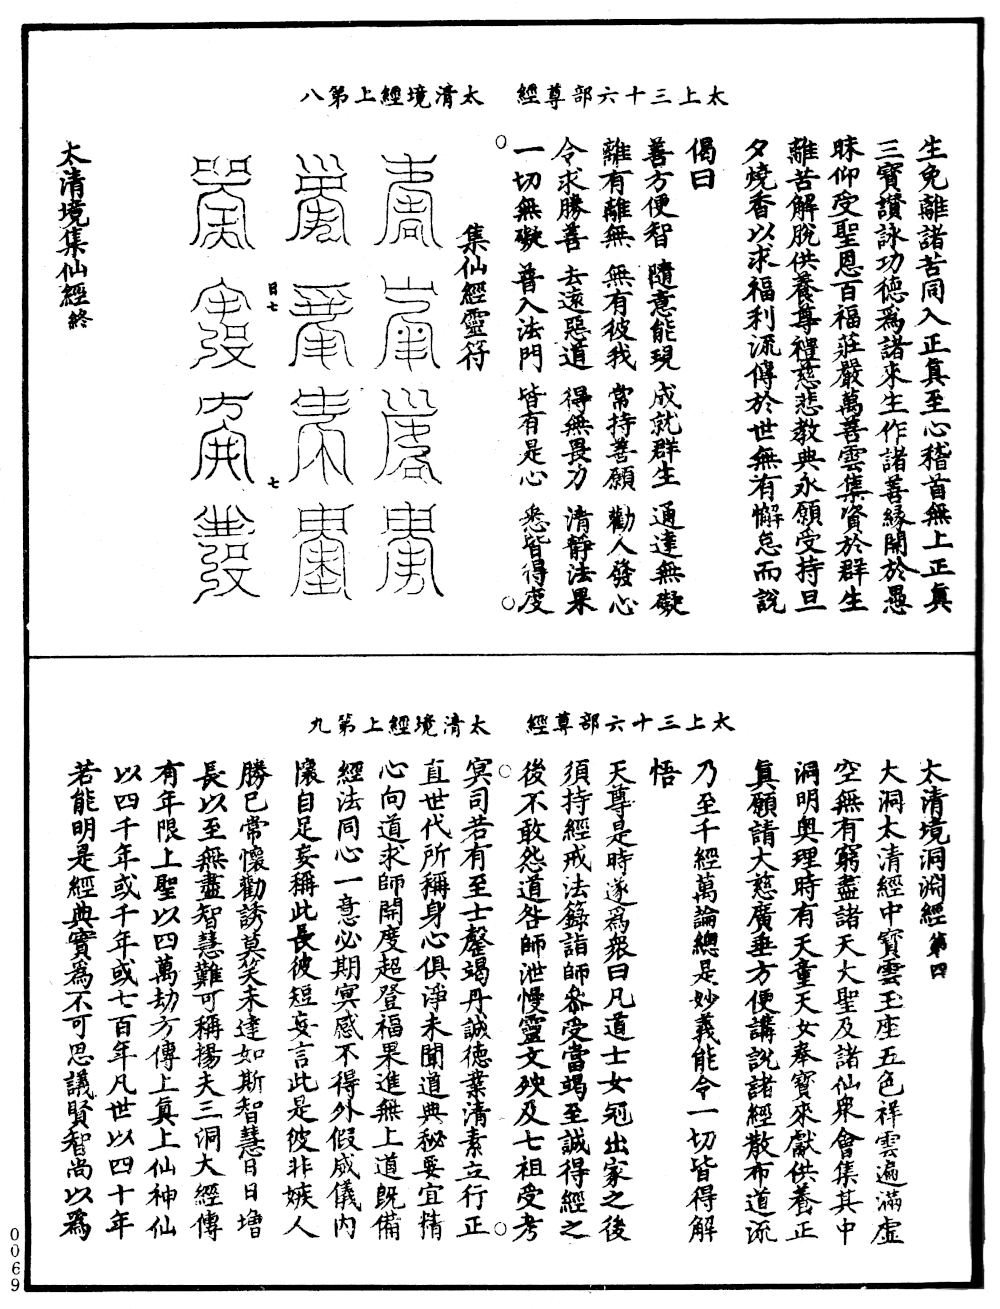 太上三十六部尊經　太清境經上第八
生免離諸苦同入正真至心稽首無上正真
三寶讚詠功德為諸來生作諸善緣開於愚
昧仰受聖恩百福莊嚴萬善雲集資於群生
離苦解脫供養尊禮慈悲教典永願受持旦
夕燒香以求福利流傳於世無有懈怠而說
偈曰
善方便智　隨意能現　成就群生　通達無礙
離有離無　無有彼我　常持善願　勸人發心
令求勝善　去遠惡道　得無畏力　清靜法果
一切無礙　普入法門　皆有是心　悉皆得度
集仙經靈符
日七
七
太清境集仙經終
太上三十六部尊經　太清境經上第九
太清境洞淵經第四
大洞太清經中寶雲玉座五色祥雲遍滿虛
空無有窮盡諸天大聖及諸仙眾會集其中
洞明奧理時有天童天女奉寶來獻供養正
真願請大慈廣垂方便講說諸經散布道流
乃至千經萬論總是妙義能令一切皆得解
悟
天尊是時遂為眾曰凡道士女冠出家之後
須持經戒法籙詣師參受當竭至誠得經之
後不敢怨道咎師泄慢靈文殃及七祖受考
冥司若有至士罄竭丹誠德業清素立行正
直世代所稱身心俱淨未聞道典秘要宜精
心向道求師開度超登福果進無上道既備
經法同心一意必期冥感不得外假威儀內
懷自足妄稱此長彼短妄言此是彼非嫉人
勝已常懷勸誘莫笑未達如斯智慧日日增
長以至無盡智慧難可稱揚夫三洞大經傳
有年限上聖以四萬劫方傳上真上仙神仙
以四千年或千年或七百年凡世以四十年
若能明是經典實為不可思議賢智尚以為
0069